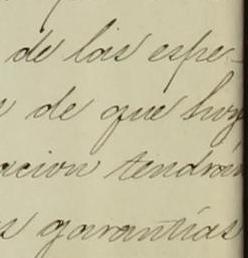 de las espe-
de que hoy
acion tendrán
s garantías